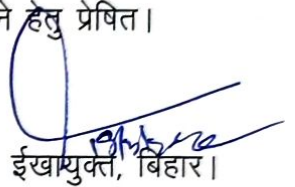 हेतु प्रेषित।
ईखायुक्त, बिहार।